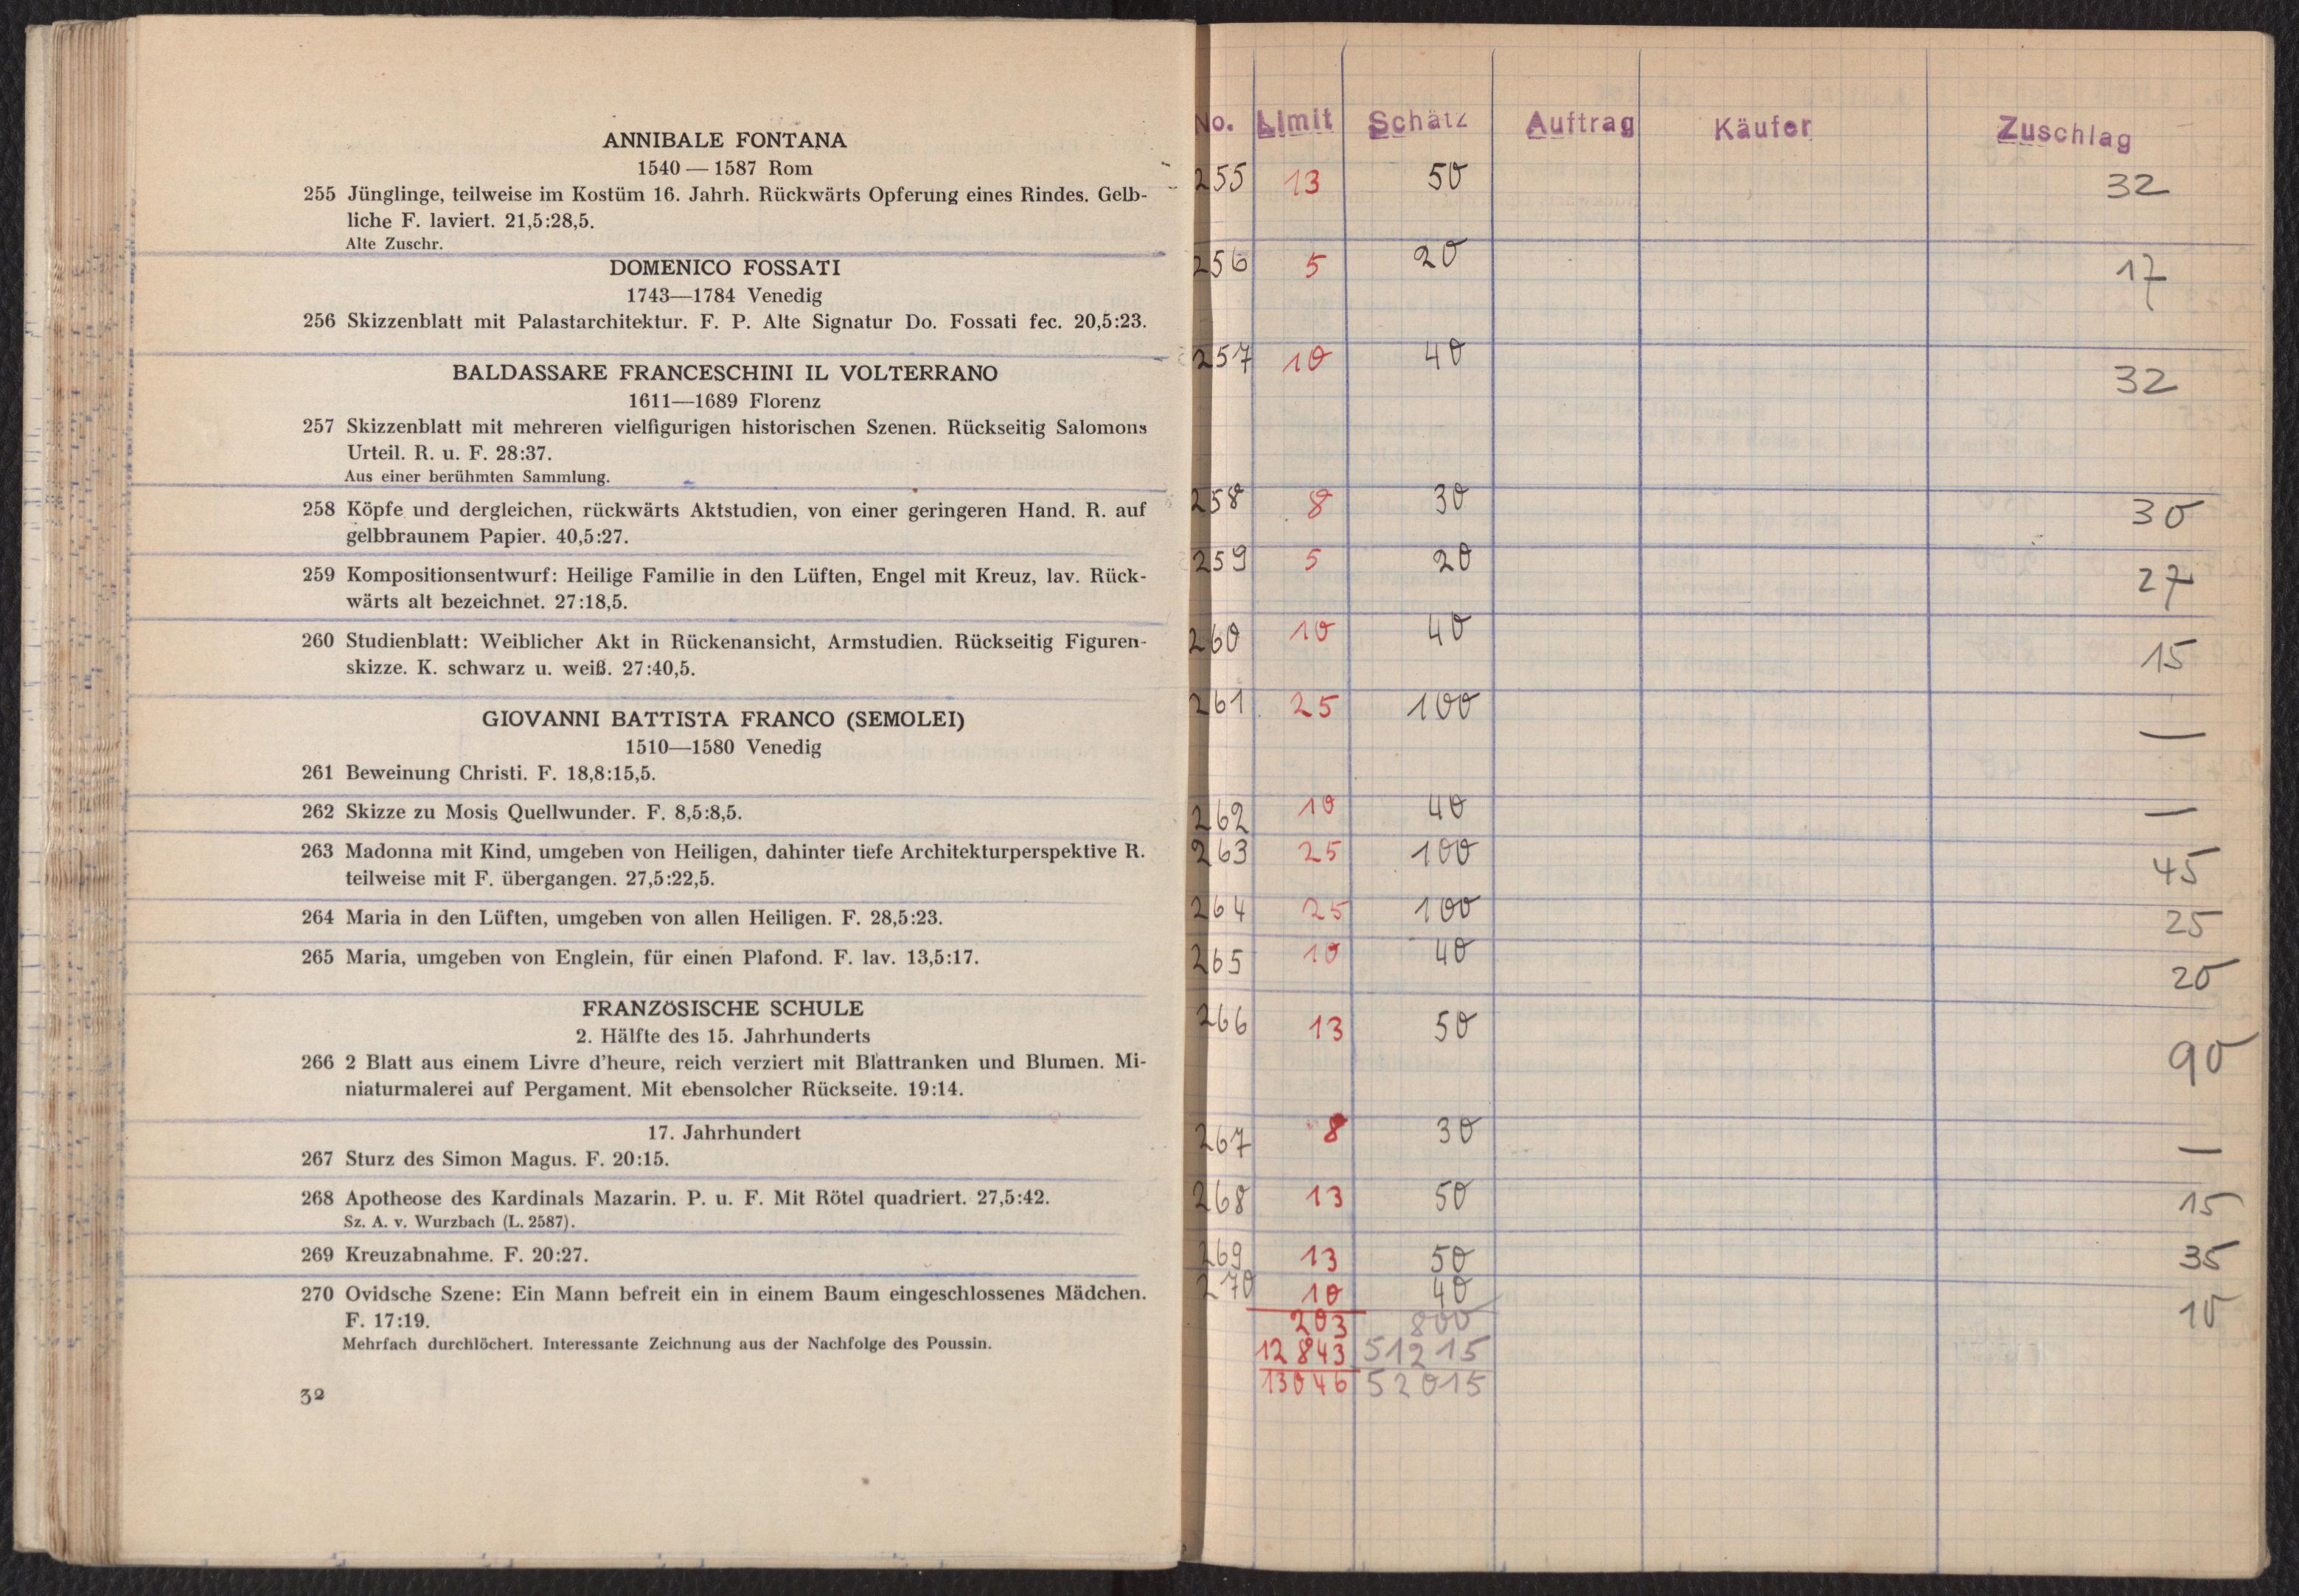 ANNIBALE FONTANA
1540 — 1587 Rom
255 Jünglinge, teilweise im Kostüm 16. Jahrh. Rückwärts Opferung eines Rindes. Gelb-
liche F. laviert. 21,5:28,5.
Alte Zuschr.
DOMENICO FOSSATI
1743—1784 Venedig
256 Skizzenblatt mit Palastarchitektur. F. P. Alte Signatur Do. Fossati fec. 20,5:23.
BALDASSARE FRANCESCHINI IL VOLTERRANO
1611—1689 Florenz
257 Skizzenblatt mit mehreren vielfigurigen historischen Szenen. Rückseitig Salomons
Urteil. R. u. F. 28:37.
Aus einer berühmten Sammlung.
258 Köpfe und dergleichen, rückwärts Aktstudien, von einer geringeren Hand. R. auf
gelbbraunem Papier. 40,5:27.
259 Kompositionsentwurf: Heilige Familie in den Lüften, Engel mit Kreuz, lav. Rück-
wärts alt bezeichnet. 27:18,5.
260 Studienblatt: Weiblicher Akt in Rückenansicht, Armstudien. Rückseitig Figuren-
skizze. K. schwarz u. weiß. 27:40,5.
GIOVANNI BATTISTA FRANCO (SEMOLEI)
1510—1580 Venedig
261 Beweinung Christi. F. 18,8:15,5.
262 Skizze zu Mosis Quellwunder. F. 8,5:8,5.
263 Madonna mit Kind, umgeben von Heiligen, dahinter tiefe Architekturperspektive R.
teilweise mit F. übergangen. 27,5:22,5.
264 Maria in den Lüften, umgeben von allen Heiligen. F. 28,5:23.
265 Maria, umgeben von Englein, für einen Plafond. F. lav. 13,5:17.
FRANZÖSISCHE SCHULE
2. Hälfte des 15. Jahrhunderts
266 2 Blatt aus einem Livre d'heure, reich verziert mit Blattranken und Blumen. Mi-
niaturmalerei auf Pergament. Mit ebensolcher Rückseite. 19:14.
17. Jahrhundert
267 Sturz des Simon Magus. F. 20:15.
268 Apotheose des Kardinals Mazarin. P. u. F. Mit Rötel quadriert. 27,5:42.
Sz. A. v. Wurzbach (L. 2587).
269 Kreuzabnahme. F. 20:27.
270 Ovidsche Szene: Ein Mann befreit ein in einem Baum eingeschlossenes Mädchen.
F. 17:19.
Mehrfach durchlöchert. Interessante Zeichnung aus der Nachfolge des Poussin.
32
No. Limit Schätz Auftrag Käufer Zuschlag
255 13 50 32
256 5 20 17
257 10 40 32
258 8 30 30
259 5 20 27
260 10 40 15
261 25 100 —
262 10 40 —
263 25 100 45
264 25 100 25
265 10 40 20
266 13 50 90
267 8 30 —
268 13 50 15
269 13 50 35
270 10 40 10
203 800
12843 51215
13046 52015